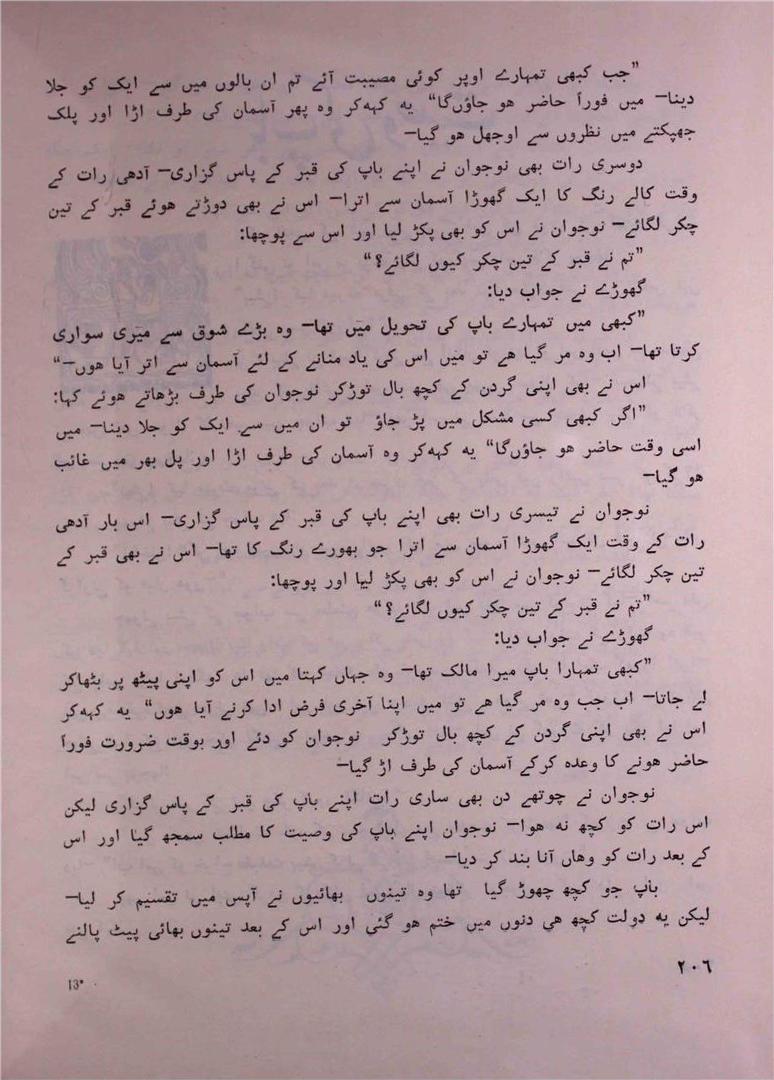 ”جب کبھی تمہارے اوپر کوئی مصیبت آئے تم ان بالوں میں سے ایک کو جلا
دینا— میں فوراً حاضر ھو جاؤں‌گا“ یہ کہہ‌کر وہ پھر آسمان کی طرف اڑا اور پلک
جھپکتے میں نظروں سے اوجھل ھو گیا—
دوسری رات بھی نوجوان نے اپنے باپ کی قبر کے پاس گزاری— آدھی رات کے
وقت کالے رنگ کا ایک گھوڑا آسمان سے اترا— اس نے بھی دوڑتے ھوئے قبر کے تین
چکر لگائے— نوجوان نے اس کو بھی پکڑ لیا اور اس سے پوچھا:
”تم نے قبر کے تین چکر کیوں لگائے؟“
گھوڑے نے جواب دیا:
”کبھی میں تمہارے باپ کی تحویل میں تھا— وہ بڑے شوق سے میری سواری
کرتا تھا— اب وہ مر گیا ھے تو میں اس کی یاد منانے کے لئے آسمان سے اتر آیا ھوں—“
اس نے بھی اپنی گردن کے کچھ بال توڑکر نوجوان کی طرف بڑھاتے ھوئے کہا:
”اگر کبھی کسی مشکل میں پڑ جاؤ تو ان میں سے ایک کو جلا دینا— میں
اسی وقت حاضر ھو جاؤں‌گا“ یہ کہہ‌کر وہ آسمان کی طرف اڑا اور پل بھر میں غائب
ھو گیا—
نوجوان نے تیسری رات بھی اپنے باپ کی قبر کے پاس گزاری— اس بار آدھی
رات کے وقت ایک گھوڑا آسمان سے اترا جو بھورے رنگ کا تھا— اس نے بھی قبر کے
تین چکر لگائے— نوجوان نے اس کو بھی پکڑ لیا اور پوچھا:
”تم نے قبر کے تین چکر کیوں لگائے؟“
گھوڑے نے جواب دیا:
”کبھی تمہارا باپ میرا مالک تھا— وہ جہاں کہتا میں اس کو اپنی پیٹھ پر بٹھاکر
لے جاتا— اب جب وہ مر گیا ھے تو میں اپنا آخری فرض ادا کرنے آیا ھوں“ یہ کہہ‌کر
اس نے بھی اپنی گردن کے کچھ بال توڑکر نوجوان کو دئے اور بوقت ضرورت فوراً
حاضر ھونے کا وعدہ کرکے آسمان کی طرف اڑ گیا—
نوجوان نے چوتھے دن بھی ساری رات اپنے باپ کی قبر کے پاس گزاری لیکن
اس رات کو کچھ نہ ھوا— نوجوان اپنے باپ کی وصیت کا مطلب سمجھ گیا اور اس
کے بعد رات کو وھاں آنا بند کر دیا—
باپ جو کچھ چھوڑ گیا تھا وہ تینوں بھائیوں نے آپس میں تقسیم کر لیا—
لیکن یہ دولت کچھ ھی دنوں میں ختم ھو گئی اور اس کے بعد تینوں بھائی پیٹ پالنے
۲۰۶
13*